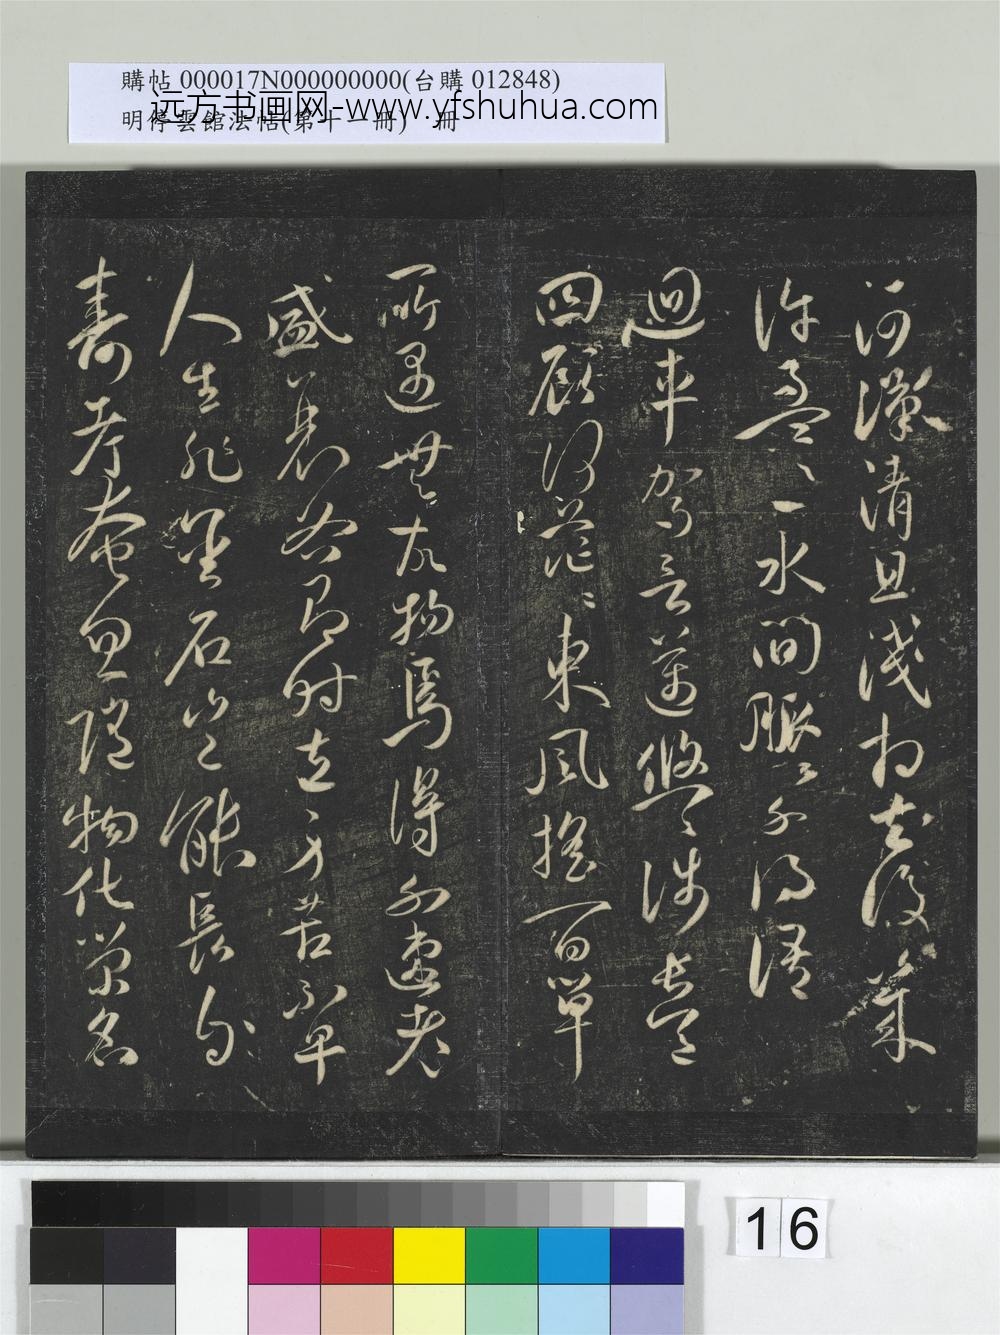 購帖 000017N000000000(台購 012848)
远方书画网-www.yfshuhua.com
明停雲館法帖(第十一冊) 冊
河漢清且淺相去復幾
許盈〻一水間脈〻不得語
迴車駕言邁悠〻涉長道
四顧何茫〻東風搖百草
所遇無故物焉得不速老
盛衰各有時立身苦不早
人生非金石豈能長
壽考奄忽隨物化榮名
16